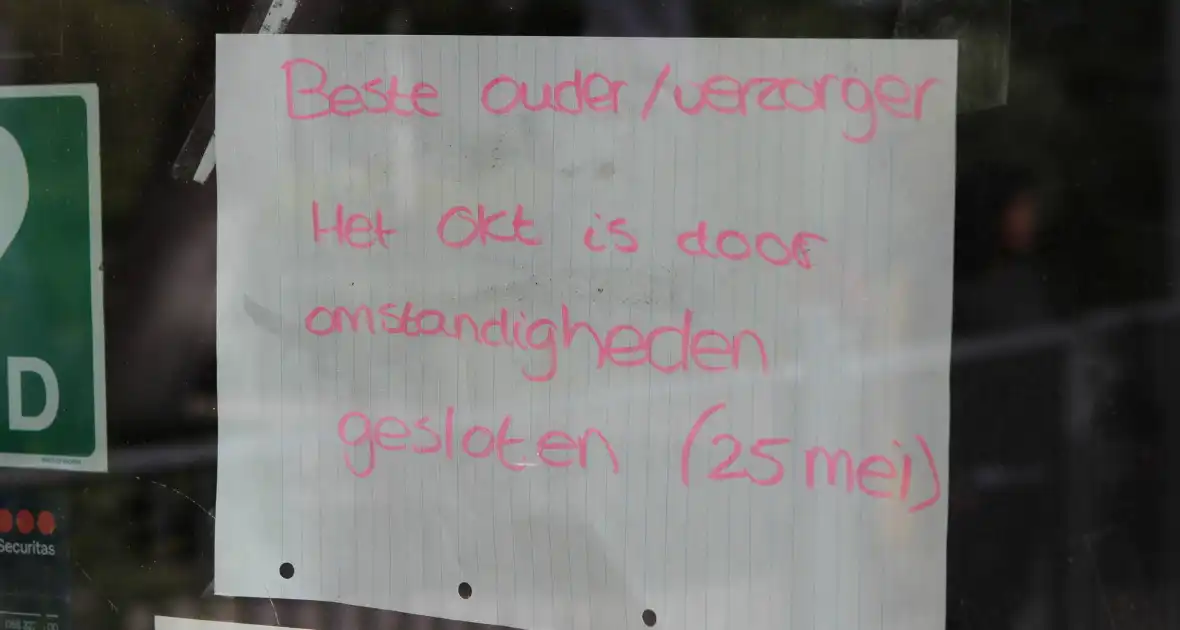 Beste ouder/verzorger
Het Okt is door
omstandigheden
gesloten (25 mei)
D
Securitas